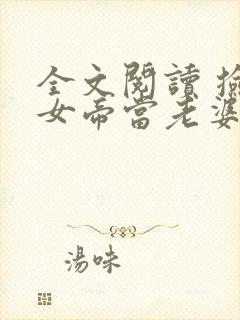 全文閱讀 撿
女帝當老婆
湯味